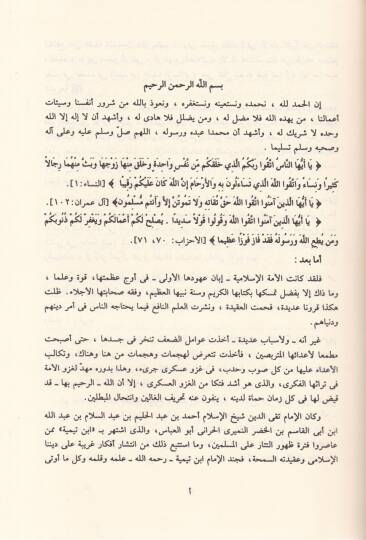 بسم الله الرحمن الرحيم
إن الحمد لله ، نحمده ونستعينه ونستغفره ، ونعوذ بالله من شرور أنفسنا وسيئات
أعمالنا ، من يهده الله فلا مضل له ، ومن يضلل فلا هادى له ، وأشهد أن لا إله إلا الله
وحده لا شريك له ، وأشهد أن محمدا عبده ورسوله ، اللهم صلّ وسلم عليه وعلى آله
وصحبه وسلم تسليما .
﴿ يَا أَيُّهَا النَّاسُ اتَّقُوا رَبَّكُمُ الَّذِي خَلَقَكُم مِّن نَّفْسٍ وَاحِدَةٍ وَخَلَقَ مِنْهَا زَوْجَهَا وَبَثَّ مِنْهُمَا رِجَالاً
كَثِيرًا وَنِسَاءً وَاتَّقُوا اللَّهَ الَّذِي تَسَاءَلُونَ بِهِ وَالأَرْحَامَ إِنَّ اللَّهَ كَانَ عَلَيْكُمْ رَقِيبًا ﴾ [النساء:١].
﴿ يَا أَيُّهَا الَّذِينَ آمَنُوا اتَّقُوا اللَّهَ حَقَّ تُقَاتِهِ وَلا تَمُوتُنَّ إِلاَّ وَأَنتُم مُّسْلِمُونَ ﴾ [آل عمران:١٠٢].
﴿ يَا أَيُّهَا الَّذِينَ آمَنُوا اتَّقُوا اللَّهَ وَقُولُوا قَوْلاً سَدِيدًا . يُصْلِحْ لَكُمْ أَعْمَالَكُمْ وَيَغْفِرْ لَكُمْ ذُنُوبَكُمْ
وَمَن يُطِعِ اللَّهَ وَرَسُولَهُ فَقَدْ فَازَ فَوْزًا عَظِيمًا ﴾ [الأحزاب: ٧٠، ٧١].
أما بعد :
فلقد كانت الأمة الإسلامية ـ إبان عهودها الأولى ـ فى أوج عظمتها، قوة وعلما ،
وما ذاك إلا بفضل تمسكها بكتابها الكريم وسنة نبيها العظيم، وفقه صحابتها الأجلاء. ظلت
هكذا قرونا عديدة، فحمت العقيدة ، ونشرت العلم النافع فيما يحتاجه الناس فى أمر دينهم
ودنياهم.
غير أنه ـ ولأسباب عديدة ـ أخذت عوامل الضعف تنخر فى جسدها ، حتى أصبحت
مطمعا لأعدائها المتربصين ، فأخذت تتعرض لهجمات وهجمات من هنا وهناك، وتكالب
الأعداء عليها من كل صوب وحدب، فى غزو عسكرى جرىء، وهذا بدوره مهد لغزو الأمة
فى تراثها الفكرى، والذى هو أشد فتكا من الغزو العسكرى ، إلا أن الله ـ الرحيم بها ـ قد
قيض لها فى كل زمان حماة لدينه ، ينفون عنه تحريف الغالين وانتحال المبطلين.
وكان الإمام تقى الدين شيخ الإسلام أحمد بن عبد الحليم بن عبد السلام بن عبد الله
ابن أبى القاسم بن الخضر النميرى الحرانى أبو العباس، والذى اشتهر بـ «ابن تيمية» ممن
عاصروا فترة ظهور التتار على المسلمين، وما استتبع ذلك من انتشار أفكار غريبة على ديننا
الإسلامى وعقيدته السمحة، فجند الإمام ابن تيمية ـ رحمه الله ـ علمه وقلمه وكل ما أوتى
أ